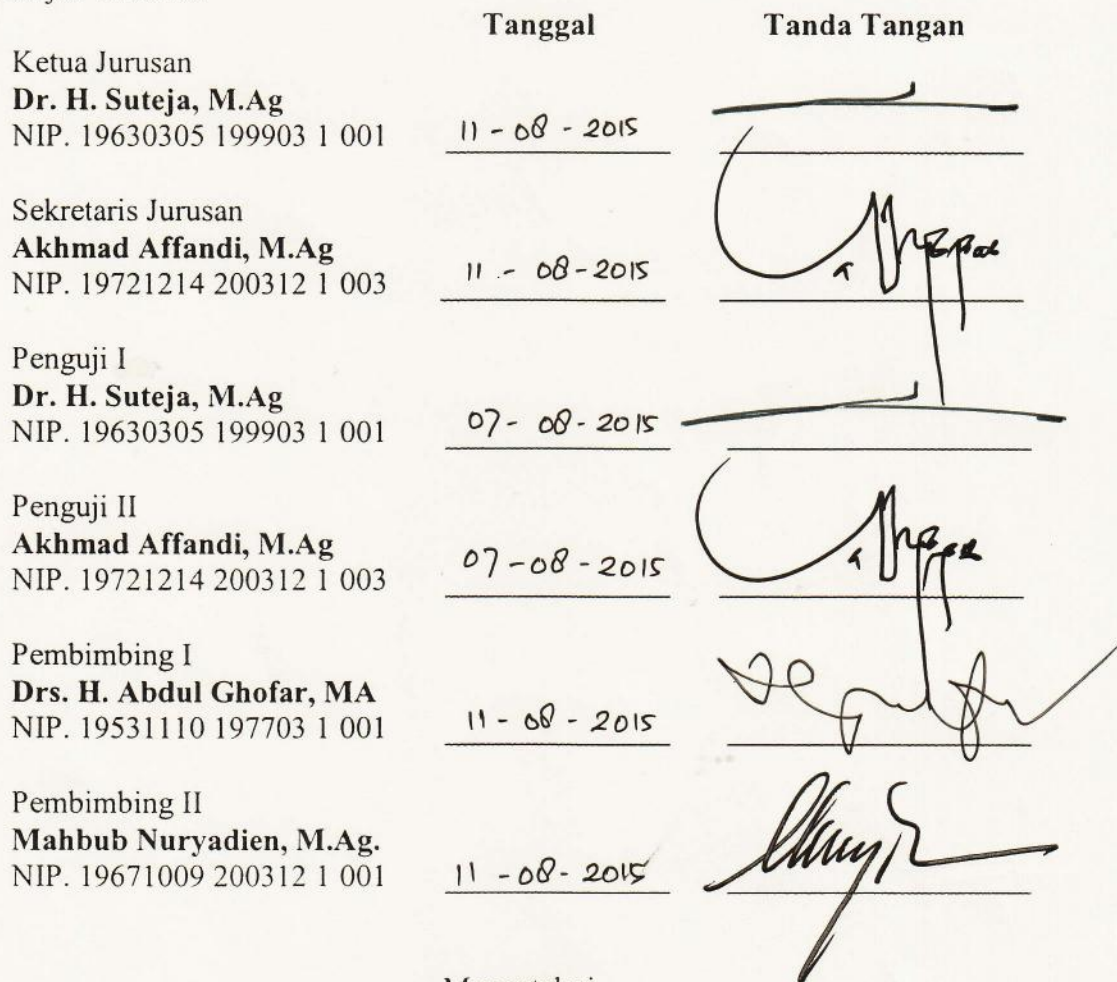 Tanggal Tanda Tangan
Ketua Jurusan
Dr. H. Suteja, M.Ag
NIP. 19630305 199903 1 001 11 - 08 - 2015
Sekretaris Jurusan
Akhmad Affandi, M.Ag
NIP. 19721214 200312 1 003 11 - 08 - 2015
Penguji I
Dr. H. Suteja, M.Ag
NIP. 19630305 199903 1 001 07 - 08 - 2015
Penguji II
Akhmad Affandi, M.Ag
NIP. 19721214 200312 1 003 07 - 08 - 2015
Pembimbing I
Drs. H. Abdul Ghofar, MA
NIP. 19531110 197703 1 001 11 - 08 - 2015
Pembimbing II
Mahbub Nuryadien, M.Ag.
NIP. 19671009 200312 1 001 11 - 08 - 2015